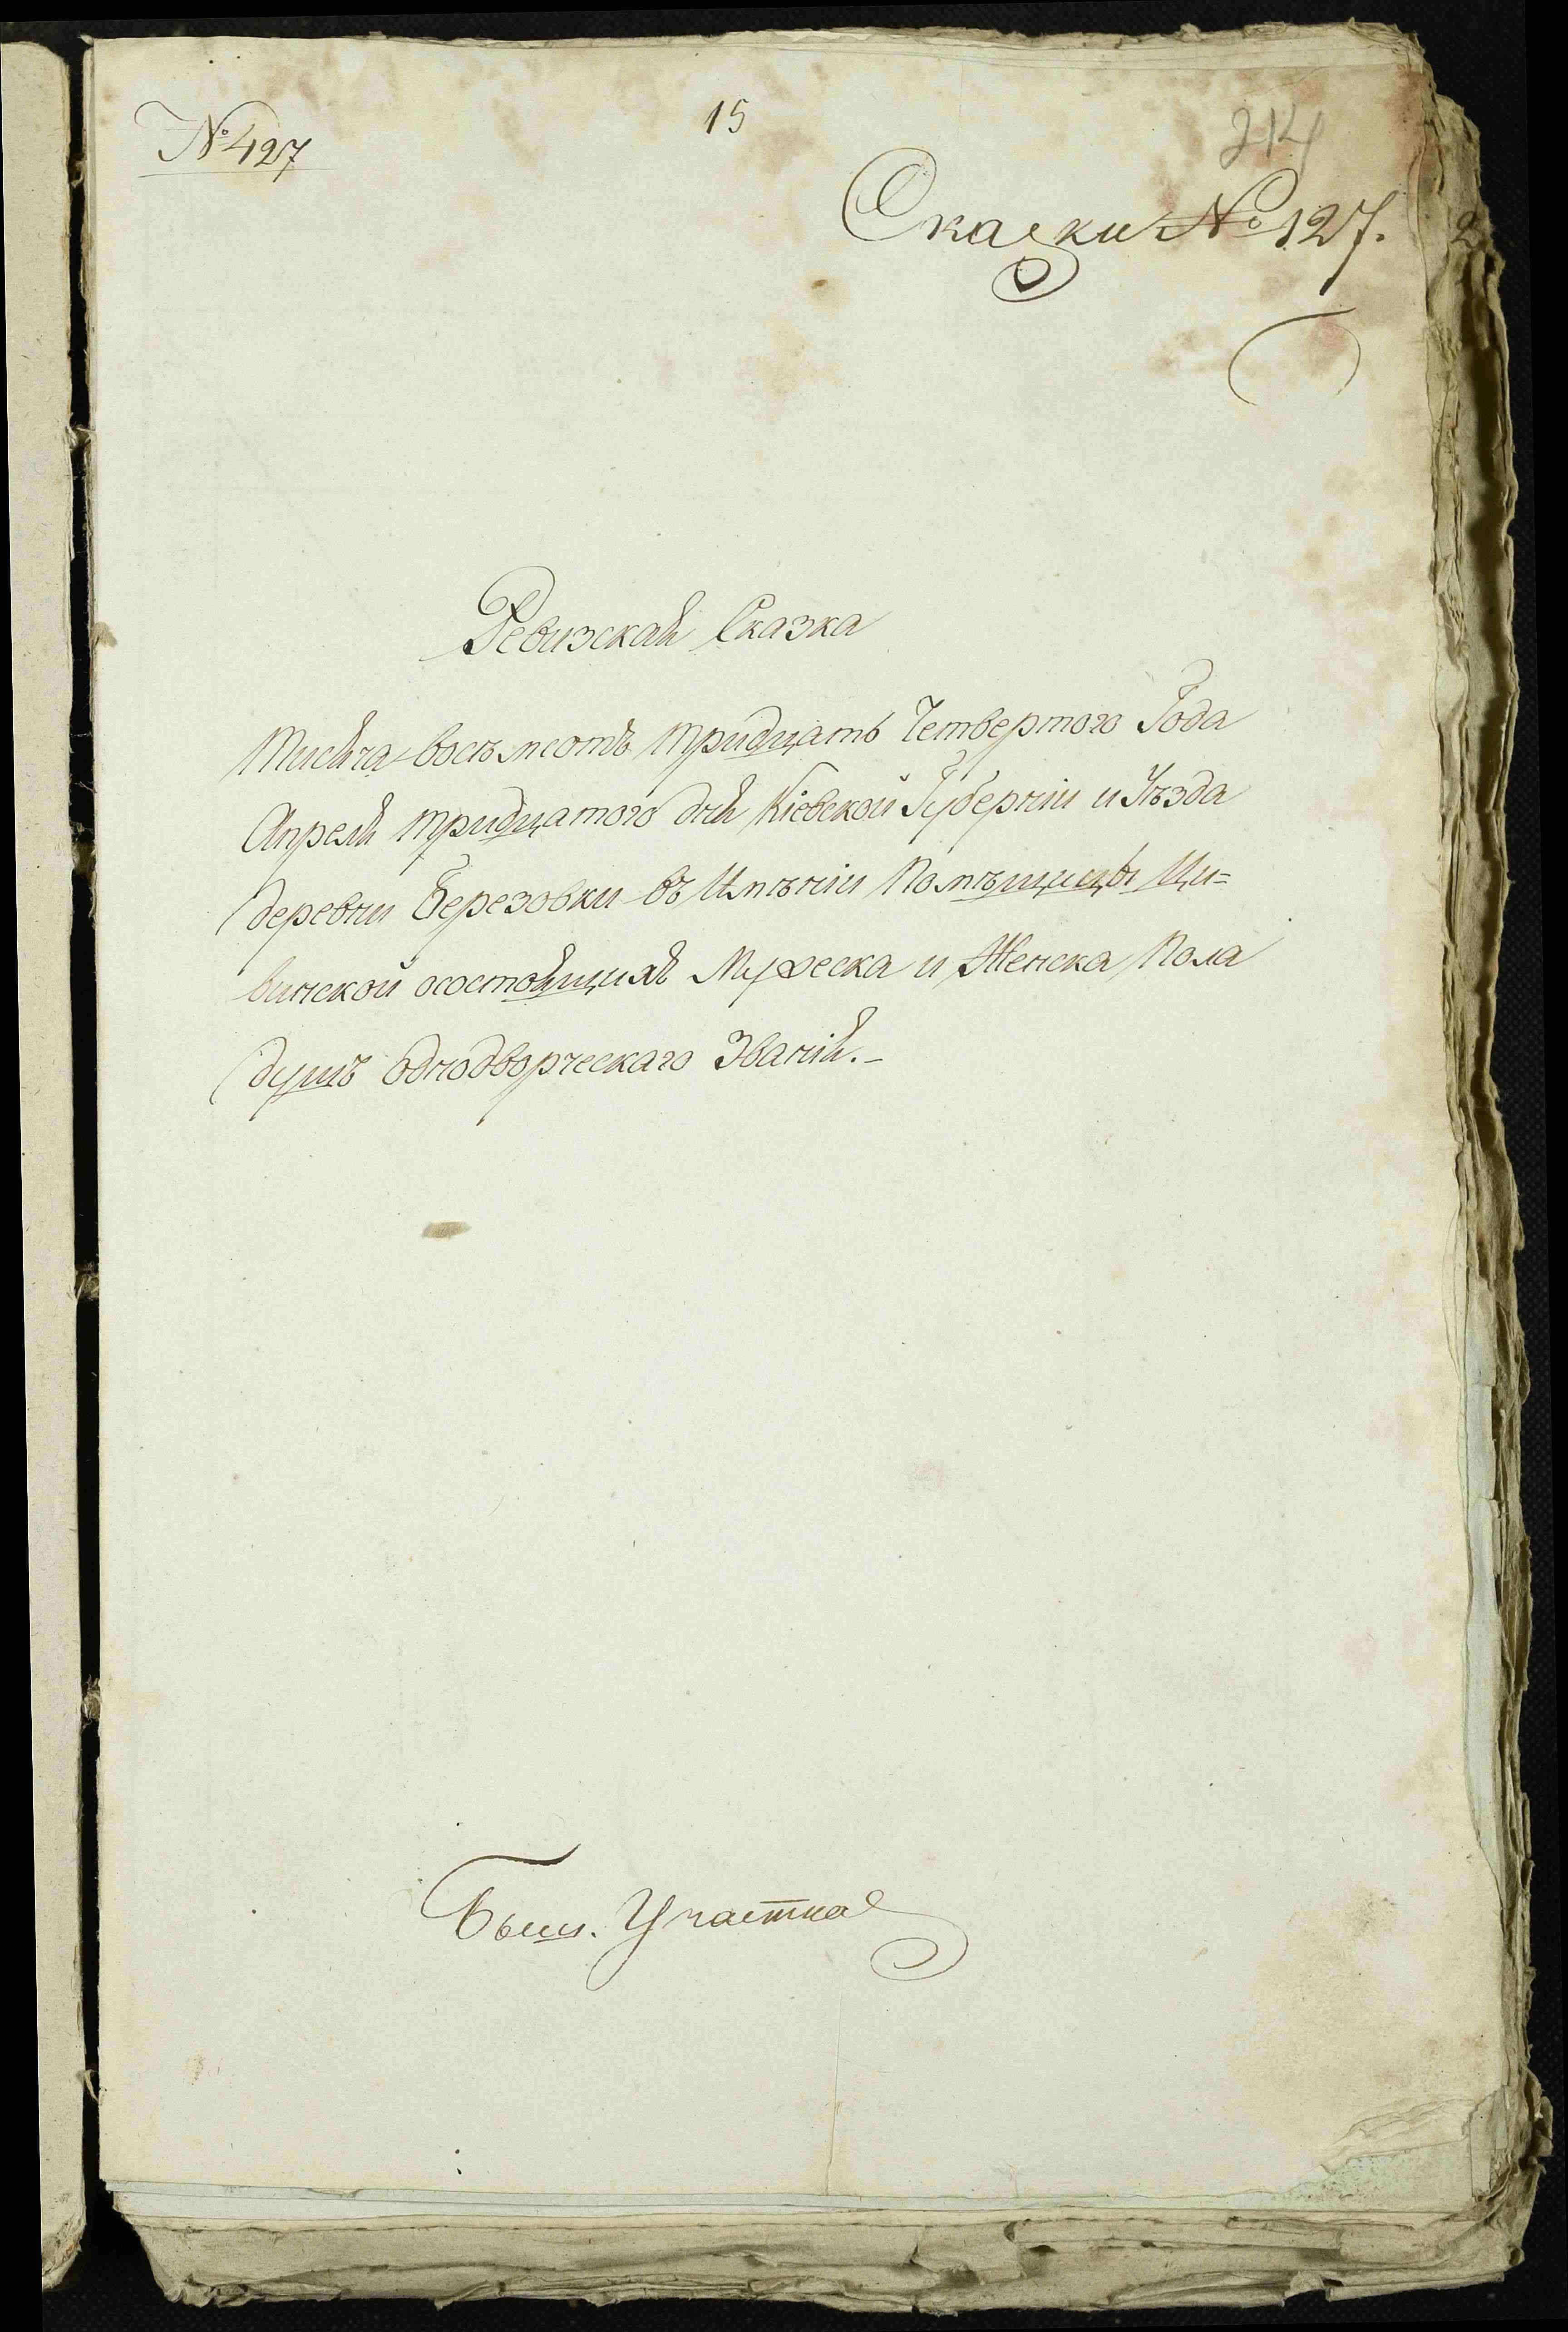 № 427
15
214
Скаски № 127.
Ревизская Сказка
Тисяча восѣмсотъ тридцать Четвертого Года
Апреля тридцатого дня Кіевской Губерніи и Уѣзда
деревни Березовки въ Имѣніи Помѣщицы Щи=
винской состоящихъ Мужеска и Женска Пола
душъ Однодворческаго Званія.–
Быш. Участка